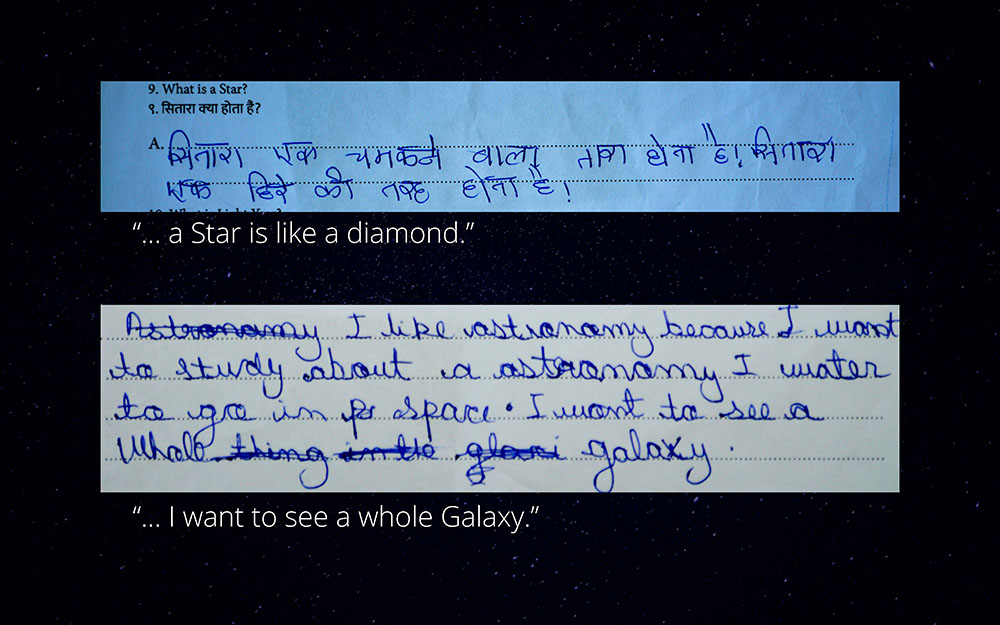 9. What is a Star?
९. सितारा क्या होता है?
A. सितारा एक चमकने वाला तारा होता है। सितारा
एक हिरे की तरह होता है!
10. What is Light Year?
“... a Star is like a diamond.”
Astronomy I like astronomy because I want
to study about a astronomy I water
to go in p space. I want to see a
Whole thing in the galaxy.
“... I want to see a whole Galaxy.”